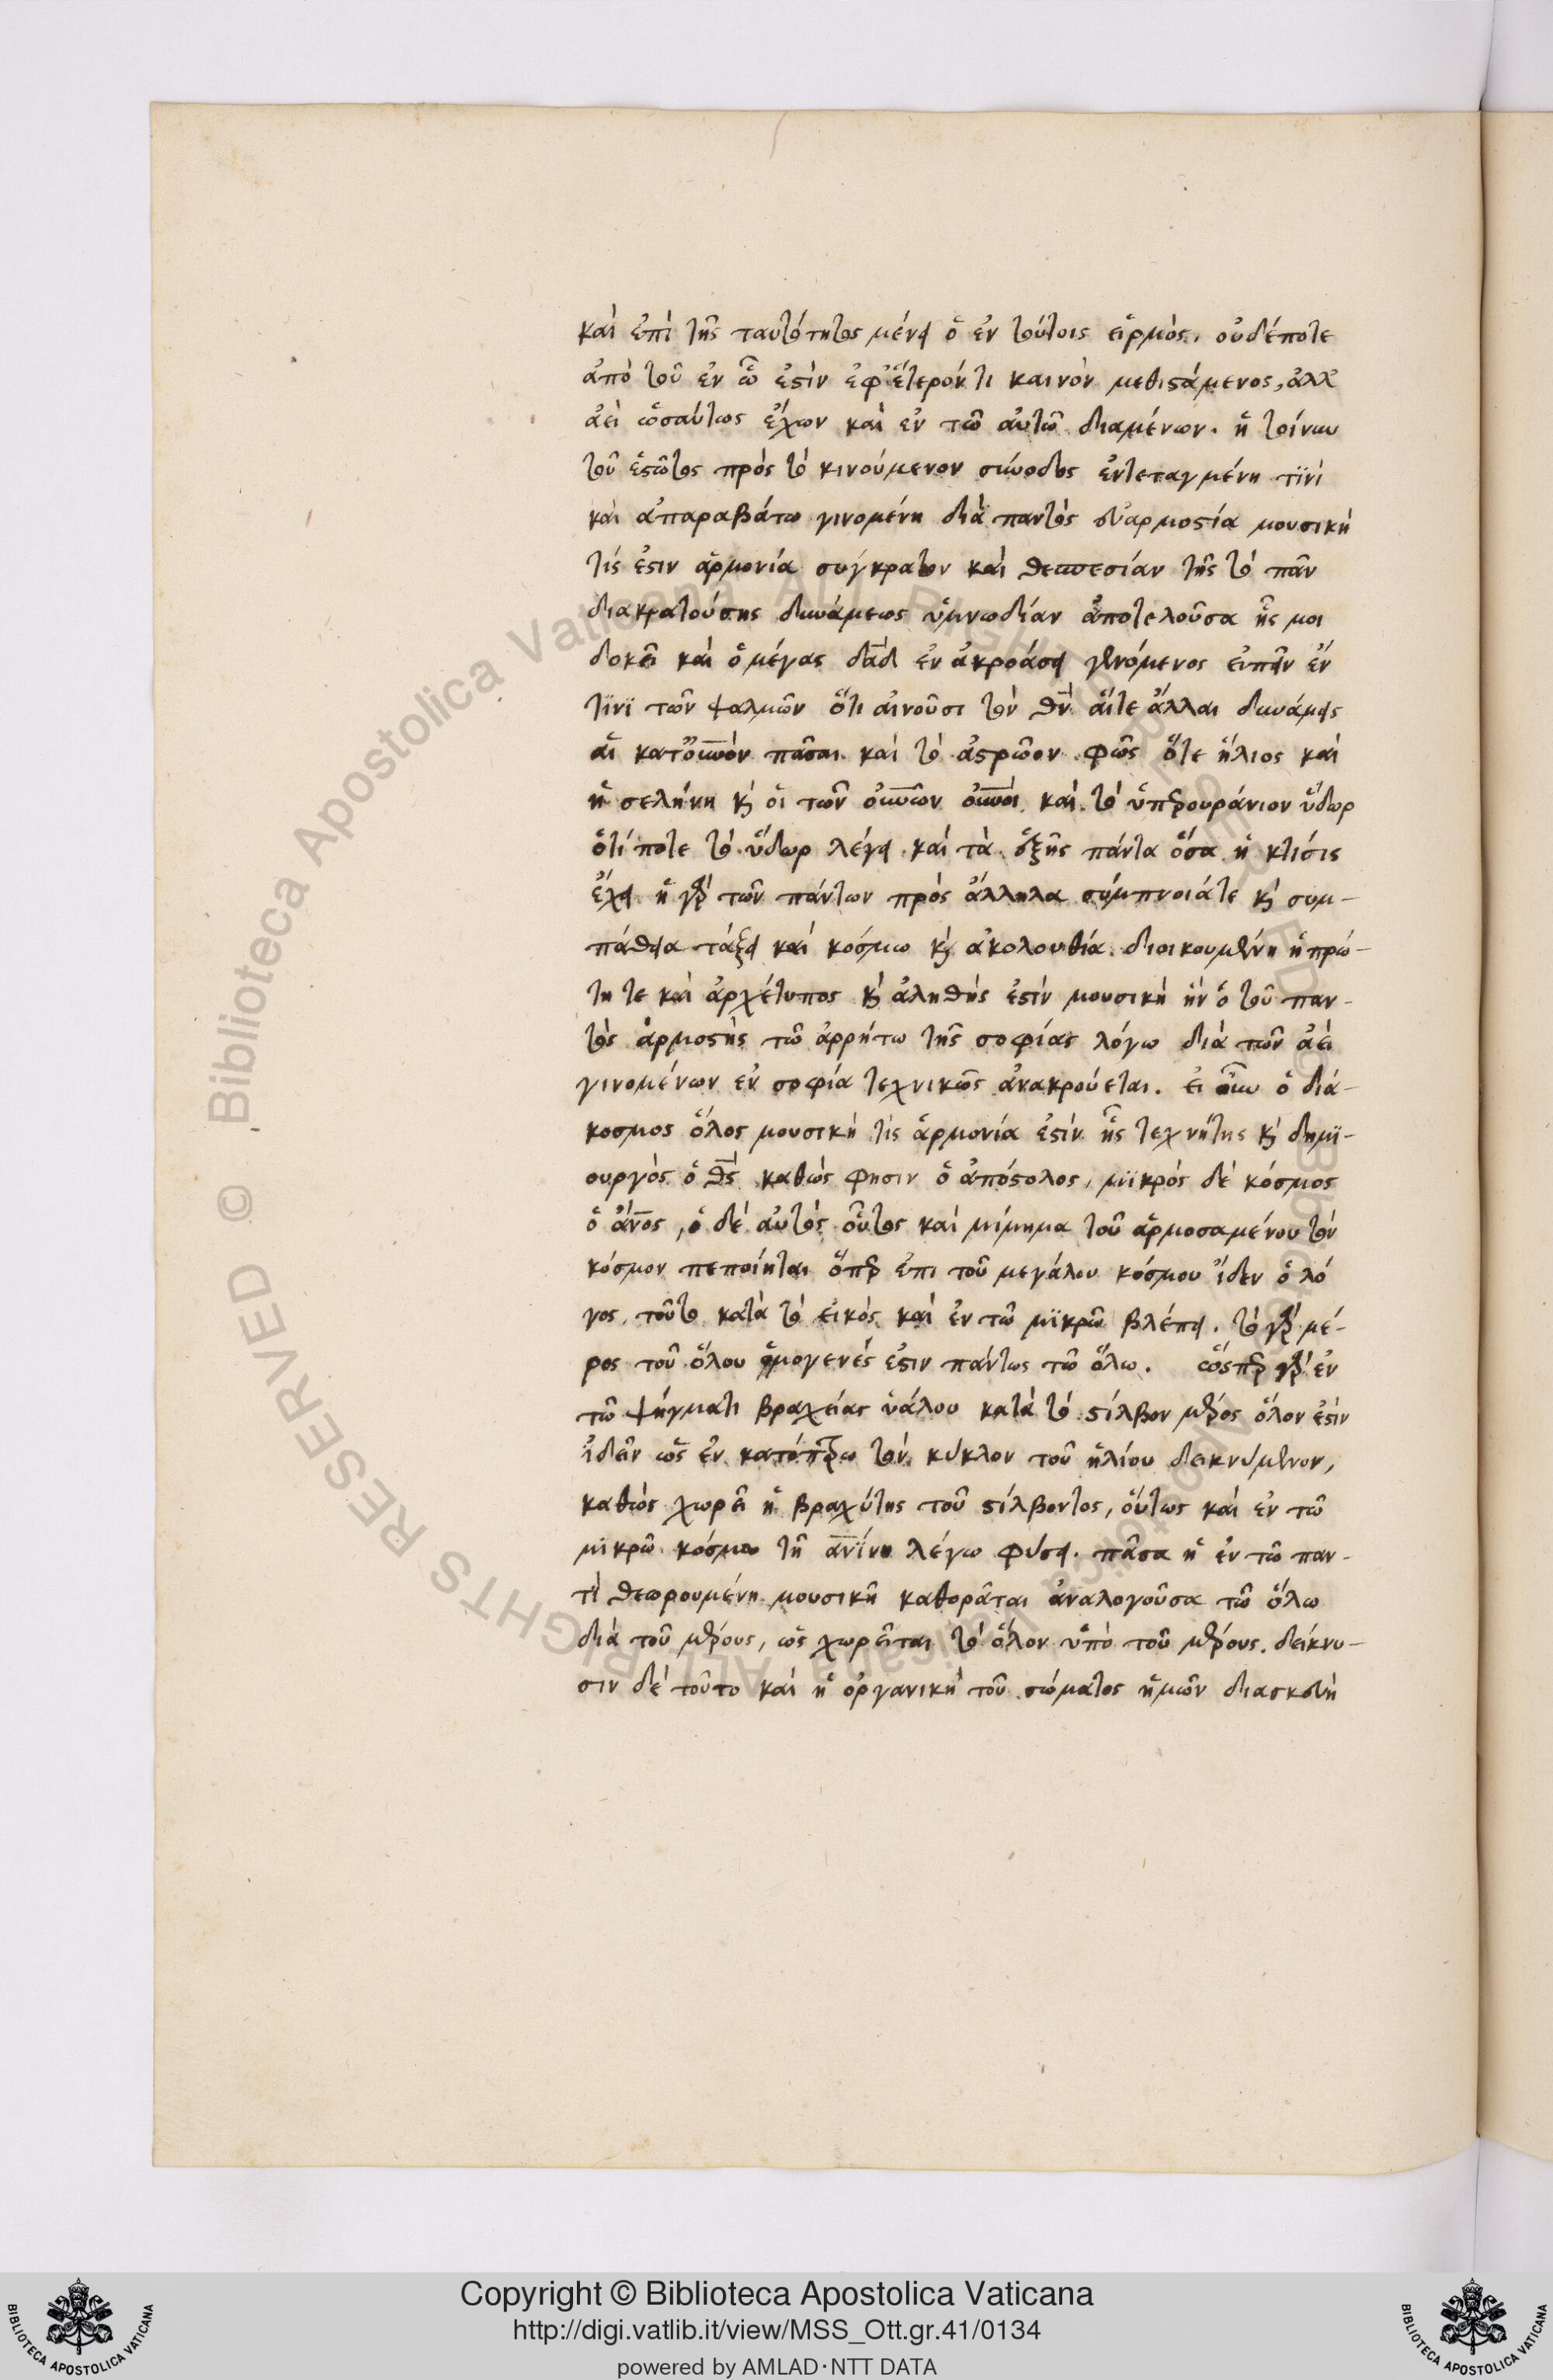 καὶ ἐπὶ τῆς ταυτότητος μένει ὁ ἐν τούτοις εἱρμὸς. οὐδέποτε
ἀπὸ τοῦ ἐν ὧ ἐστὶν ἐφ᾽ ἕτερόν τι καινὸν μεθιστάμενος, ἀλλ᾽
ἀεὶ ὡσαύτως ἔχων καὶ ἐν τῶ αὐτῶ διαμένων. ἡ τοίνυν
τοῦ ἑστῶτος πρὸς τὸ κινούμενον σύνοδος ἐντεταγμένη τϊνὶ
καὶ ἀπαραβάτω γινομένη διὰ παντὸς εὐαρμοστία μουσικὴ
τίς ἐστιν ἁρμονία σύγκρατον καὶ θεσπεσίαν τῆς τὸ πᾶν
διακρατούσης δυνάμεως ὑμνωδίαν ἀποτελοῦσα ἧς μοι
δοκεῖ καὶ ὁ μέγας δᾱδ ἐν ἀκροάσει γενόμενος εἰπεῖν ἔν
τϊνϊ τῶν ψαλμῶν ὅτι αἰνοῦσι τὸν θν̄ αἵτε ἄλλαι δυνάμεις
αἱ κατ᾽ οὐνὸν πᾶσαι καὶ τὸ ἀστρῶον φῶς ὅτε ἥλιος καὶ
ἡ σελήνη κ̀ οἱ τῶν οὐνῶν οὐνοὶ καὶ τὸ ὑπερουράνιον ὕδωρ
ὁτίποτε τὸ ὕδωρ λέγει καὶ τὰ ἑξῆς πάντα ὅσα ἡ κτίσις
ἔχει ἡ γὰρ τῶν πάντων πρὸς ἄλληλα σύμπνοιάτε κ̀ συμ-
πάθεια τάξει καὶ κόσμω κ̀ ἀκολουθία διοικουμένη ἡ πρώ-
τη τε καὶ ἀρχέτυπος κ̀ ἀληθής ἐστὶν μουσικὴ ἣν ὁ τοῦ παν-
τὸς ἁρμοστὴς τῶ ἀρρήτω τῆς σοφίας λόγω διὰ τῶν ἀεὶ
γινομένων ἐν σοφία τεχνικῶς ἀνακρούεται. εἰ οὖν ὁ διά-
κοσμος ὅλος μουσική τίς ἁρμονία ἐστὶν ἧς τεχνήτης κ̀ δημϊ-
ουργὸς ὁ θς̄ καθώς φησιν ὁ ἀπόστολος, μϊκρὸς δὲ κόσμος
ὁ ἄνος, ὁ δὲ αὐτὸς οὗτος καὶ μίμημα τοῦ ἁρμοσαμένου τὸν
κόσμον πεποίηται ὅπερ ἐπι τοῦ μεγάλου κόσμου ἴδεν ὁ λό
γος, τοῦτο κατὰ τὸ εἰκὸς καὶ ἐν τῶ μϊκρῶ βλέπει. τὸ γὰρ μέ-
ρος τοῦ ὅλου ὁμογενές ἐστιν πάντως τῶ ὅλω. ὥσπερ γὰρ ἐν
τῶ ψήγματι βραχείας ὑάλου κατὰ τὸ στίλβον μέρος ὅλον ἐστὶν
ἰδεῖν ὡς ἐν κατόπτρω τὸν κύκλον τοῦ ἡλίου δεικνύμενον,
καθὼς χωρεῖ ἡ βραχύτης τοῦ στίλβοντος, οὕτως καὶ ἐν τῶ
μικρῶ κόσμω τῆ ἀνϊνη λέγω φύσει. πᾶσα ἡ ἐν τῶ παν-
τὶ θεωρουμένη μουσικῆ καθορᾶται ἀναλογοῦσα τῶ ὅλω
διὰ τοῦ μέρους, ὡς χωρεῖται τὸ ὅλον ὑπὸ τοῦ μέρους. δείκνυ-
σιν δὲ τοῦτο καὶ ἡ ὀργανικὴ τοῦ σώματος ἡμῶν διασκευὴ
© Biblioteca Apostolica Vaticana ALL RIGHTS RESERVED
Copyright © Biblioteca Apostolica Vaticana
http://digi.vatlib.it/view/MSS_Ott.gr.41/0134
powered by AMLAD·NTT DATA
BIBLIOTECA APOSTOLICA VATICANA
BIBLIOTECA APOSTOLICA VATICANA